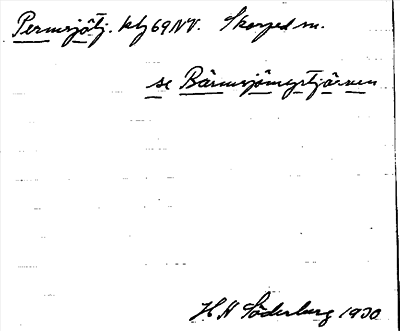 Permsjötj. kbl 69NV. Skorped sn.
se Bärmsjömyrtjärnen
H H Söderberg 1930